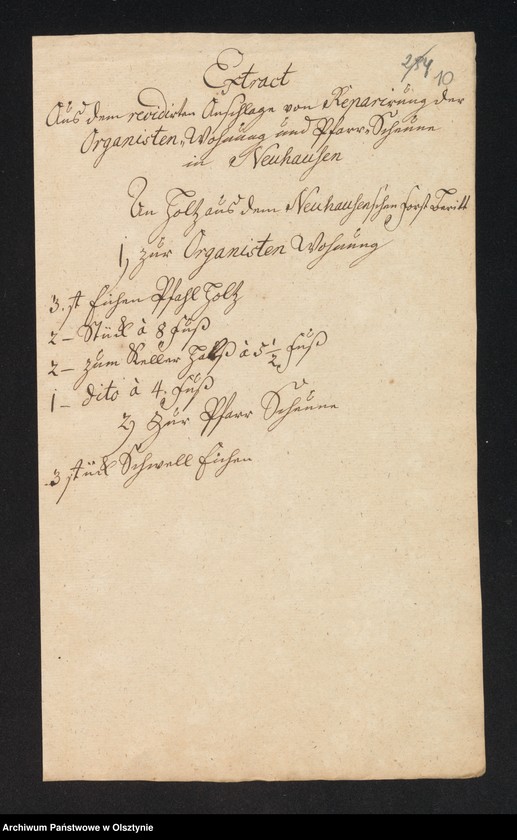 284
10
Extract
Aus dem revidirten Anschlage von Reparirung der
Organisten Wohnung und Pfarr Scheune
in Neuhausen
An Holtz aus dem Neuhausenschen Forst Beritt
1) zur Organisten Wohnung
3. st Eichen Pfahl Holtz
2 – Stück à 8 Fuß
2 – zum Keller Halß à 5 1/2 Fuß
1 – dito à 4 Fuß
2) Zur Pfarr Scheune
3 stück Schwell Eichen
Archiwum Państwowe w Olsztynie